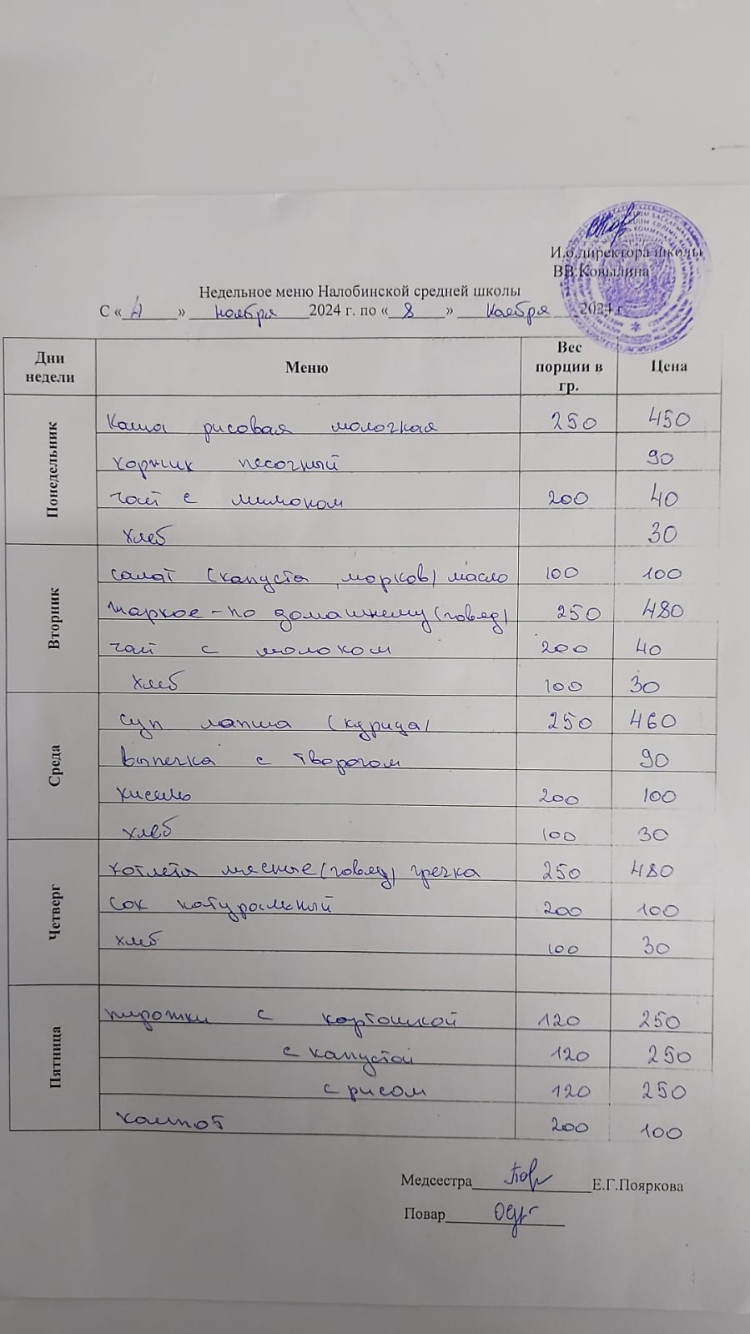 И.о.директора школы
В.В.Ковылина
Недельное меню Налобинской средней школы
С « 4 » ноября 2024 г. по « 8 » ноября 2024 г.
Дни недели Меню Вес порции в гр. Цена
Понедельник
Каша рисовая молочная 250 450
коржик песочный 90
чай с лимоном 200 40
хлеб 30
Вторник
салат (капуста, морковь) масло 100 100
жаркое-по домашнему (говяд) 250 480
чай с молоком 200 40
хлеб 100 30
Среда
суп лапша (курица) 250 460
выпечка с творогом 90
кисель 200 100
хлеб 100 30
Четверг
котлета мясные (говяд) гречка 250 480
сок натуральный 200 100
хлеб 100 30
Пятница
пирожки с картошкой 120 250
с капустой 120 250
с рисом 120 250
компот 200 100
Медсестра Е.Г.Пояркова
Повар